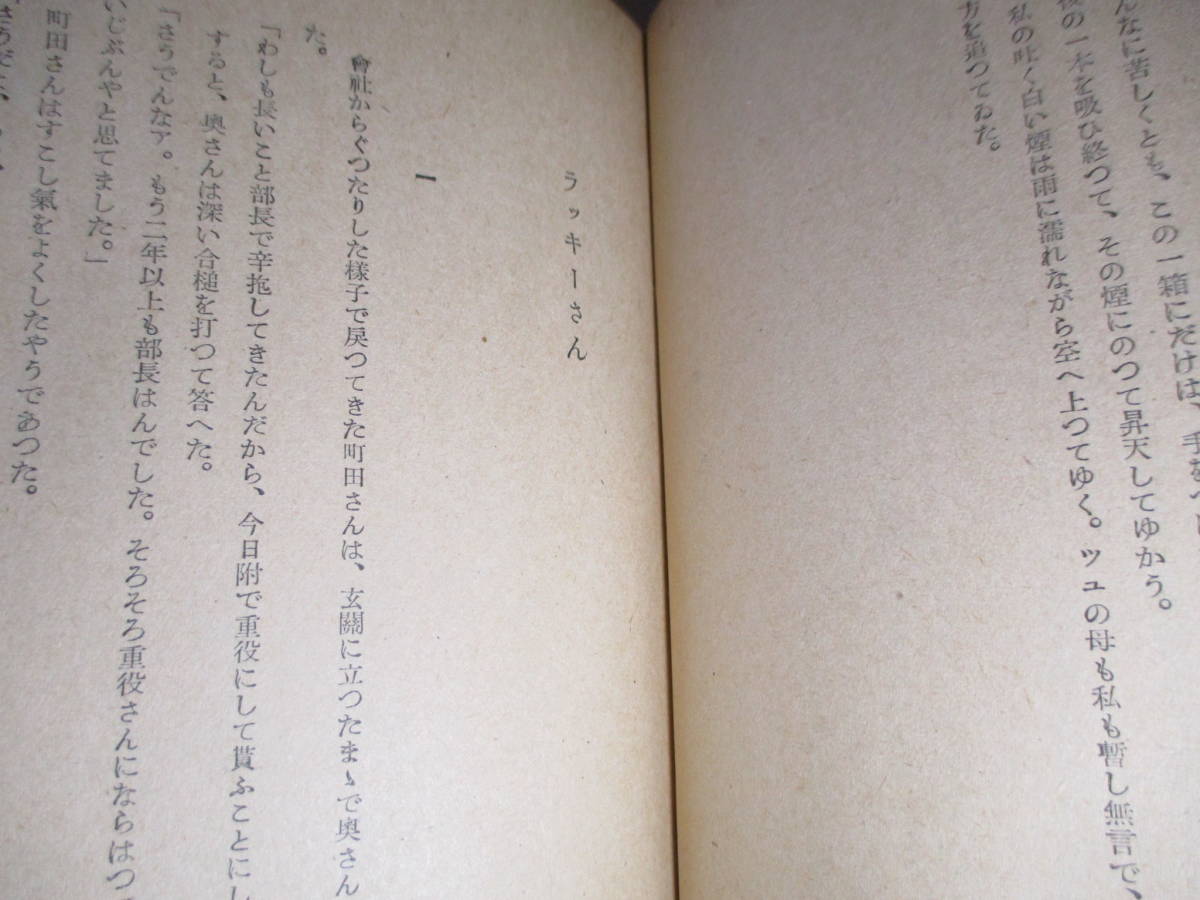 んなに苦しくとも、この一箱にだけは、手を
後の一本を吸ひ終つて、その煙にのつて昇天してゆかう。
私の吐く白い煙は雨に濡れながら空へ上つてゆく。ツユの母も私も暫し無言で、
方を追つてゐた。
ラッキーさん
一
會社からぐつたりした樣子で戻つてきた町田さんは、玄關に立つたまゝで奥さん
た。
「わしも長いこと部長で辛抱してきたんだから、今日附で重役にして貰ふことにし
すると、奥さんは深い合槌を打つて答へた。
「さうでんなア。もう二年以上も部長はんでした。そろそろ重役さんにならはつ
いじぶんやと思てました。」
町田さんはすこし氣をよくしたやうであつた。